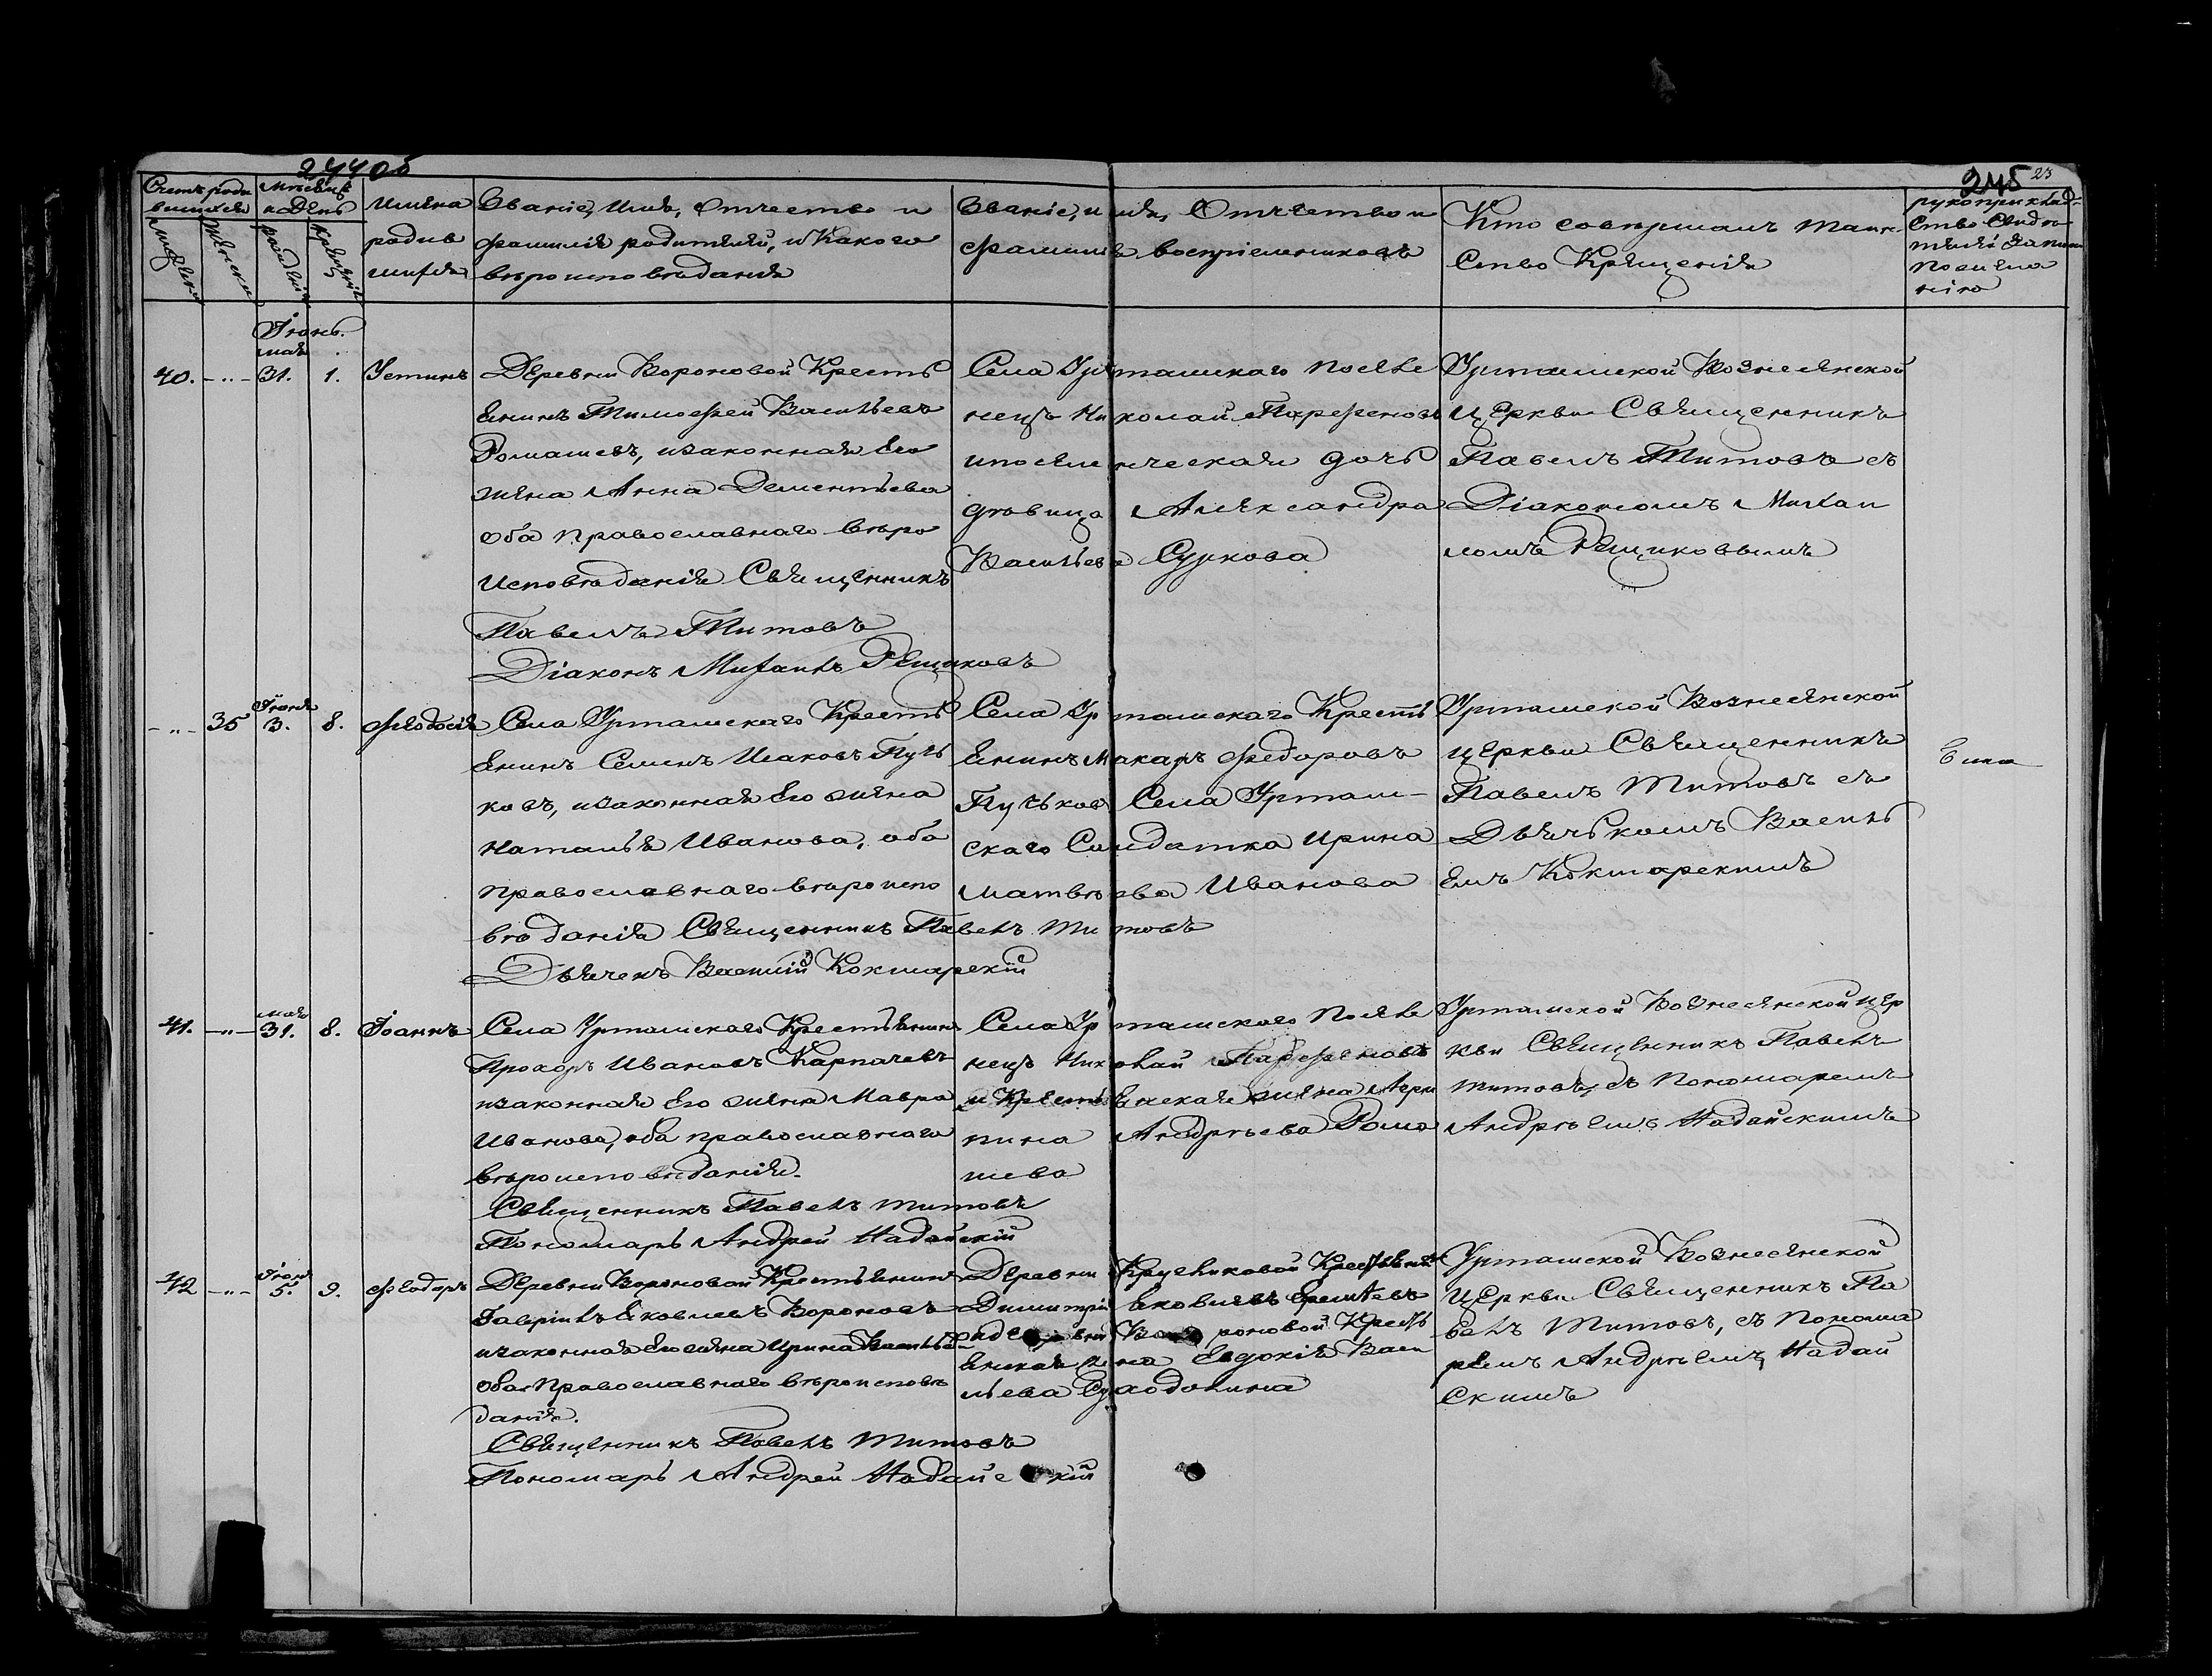 244об
245 23
Счетъ роди
вшихся
Мѣсяцъ
и День
Имена
родив
шихся
Званіе, Имя, Отчество и
фамилія родителей, и Какого
вѣроисповѣданія
Званіе, имя, Отчество и
фамилія воспріемниковъ
Кто совершалъ таин
ство Крещенія
рукоприклад-
ство Свидѣ
телей
рожденія
крещенія
Іюнь.
мая
40. - " - 31. 1. Устинъ
Деревни Вороновой Кресть
янинъ Тимофей Васильевъ
Ромашевъ, изаконная Его
жена Анна Дементьева
оба православнаго вѣро
исповѣданія Священникъ
Павелъ Титовъ
Діаконъ Михаилъ Рещиковъ
Села Урташскаго Поселе
нецъ Николай Парфеновъ
ипоселенческая дочь
дѣвица Александра
Васильева Суркова
Урташской Вознесенской
Церкви Священникъ
Павелъ Титовъ съ
Діакономъ Михаи
ломъ Рещиковымъ
Іюня
- " - 35 3. 8. Феодосія
Села Урташскаго Кресть
янинъ Семенъ Исаковъ Пуч
ковъ, изаконная Его жена
Наталья Иванова, оба
православнаго вѣроиспо
вѣданія Священникъ Павелъ Титовъ
Дьячекъ Василій Кокшарскій
Села Урташскаго Кресть
янинъ Макаръ Федоровъ
Пучьковъ Села Урташ-
скаго Солдатка Ирина
Матвѣева Иванова
Урташской Вознесенской
церкви Священникъ
Павелъ Титовъ съ
Дьячькомъ Василь
емъ Кокшарскимъ
мая
41. - " - 31. 8. Іоаннъ
Села Урташскаго Крестьянинъ
Прохоръ Ивановъ Карпачевъ
изаконная Его жена Мавра
Иванова, оба православнаго
вѣроисповѣданія.
Священникъ Павелъ Титовъ
Пономарь Андрей Надайскій
Села Урташскаго Поселе
нецъ Николай Парфеновъ
и Крестьянская жена Агри
пина Андрѣева Рома
шева
Урташской Вознесенской цер
кви Священникъ Павелъ
Титовъ, съ Пономаремъ
Андрѣемъ Надайскимъ
Іюня
42 - " - 5. 9. Феодоръ
Деревни Вороновой Крестьянинъ
Гавріилъ Яковлевъ Вороновъ
изаконная Его жена Ирина Васильева
оба Православнаго вѣроисповѣ
данія.
Священникъ Павелъ Титовъ
Пономарь Андрей Надайскій
Деревни Крестьянинъ
Димитрій Яковлевъ
идеревни Вороновой Кресть
янская жена Евдокія Васи
льева
Урташской Вознесенской
Церкви Священникъ Па
велъ Титовъ, съ Понома
ремъ Андрѣемъ Надай
скимъ